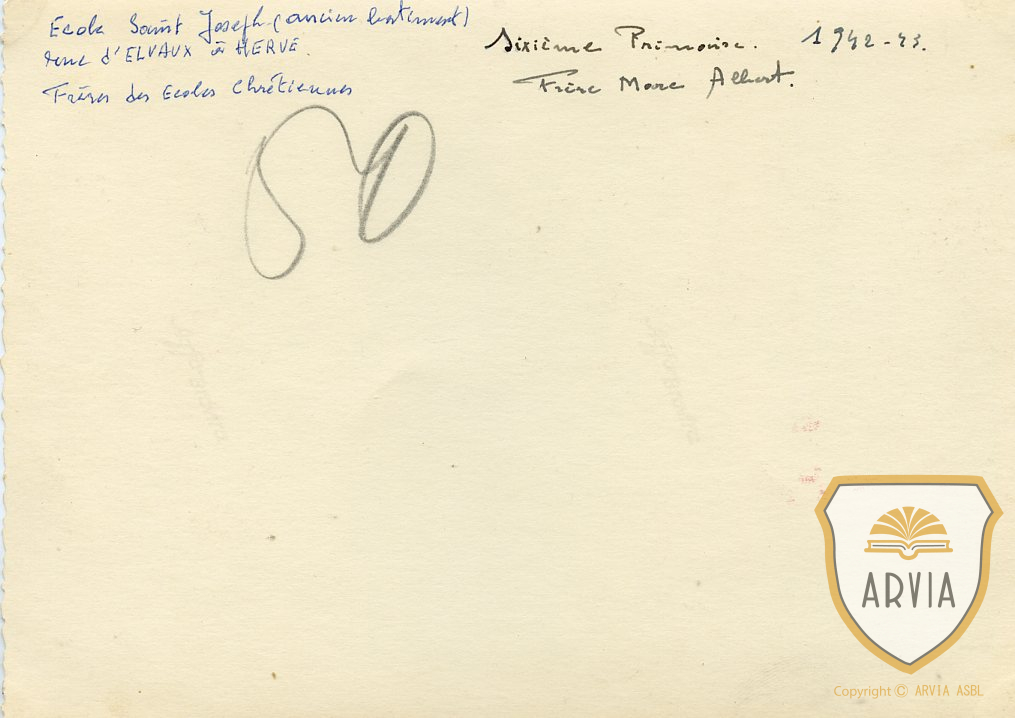 Ecole Saint Joseph (ancien batiment)
rue d'ELVAUX à HERVE.
Frères des Ecoles Chrétiennes
Sixième Primaire. 1942-43.
Frère Marc Albert.
ARVIA
Copyright © ARVIA ASBL